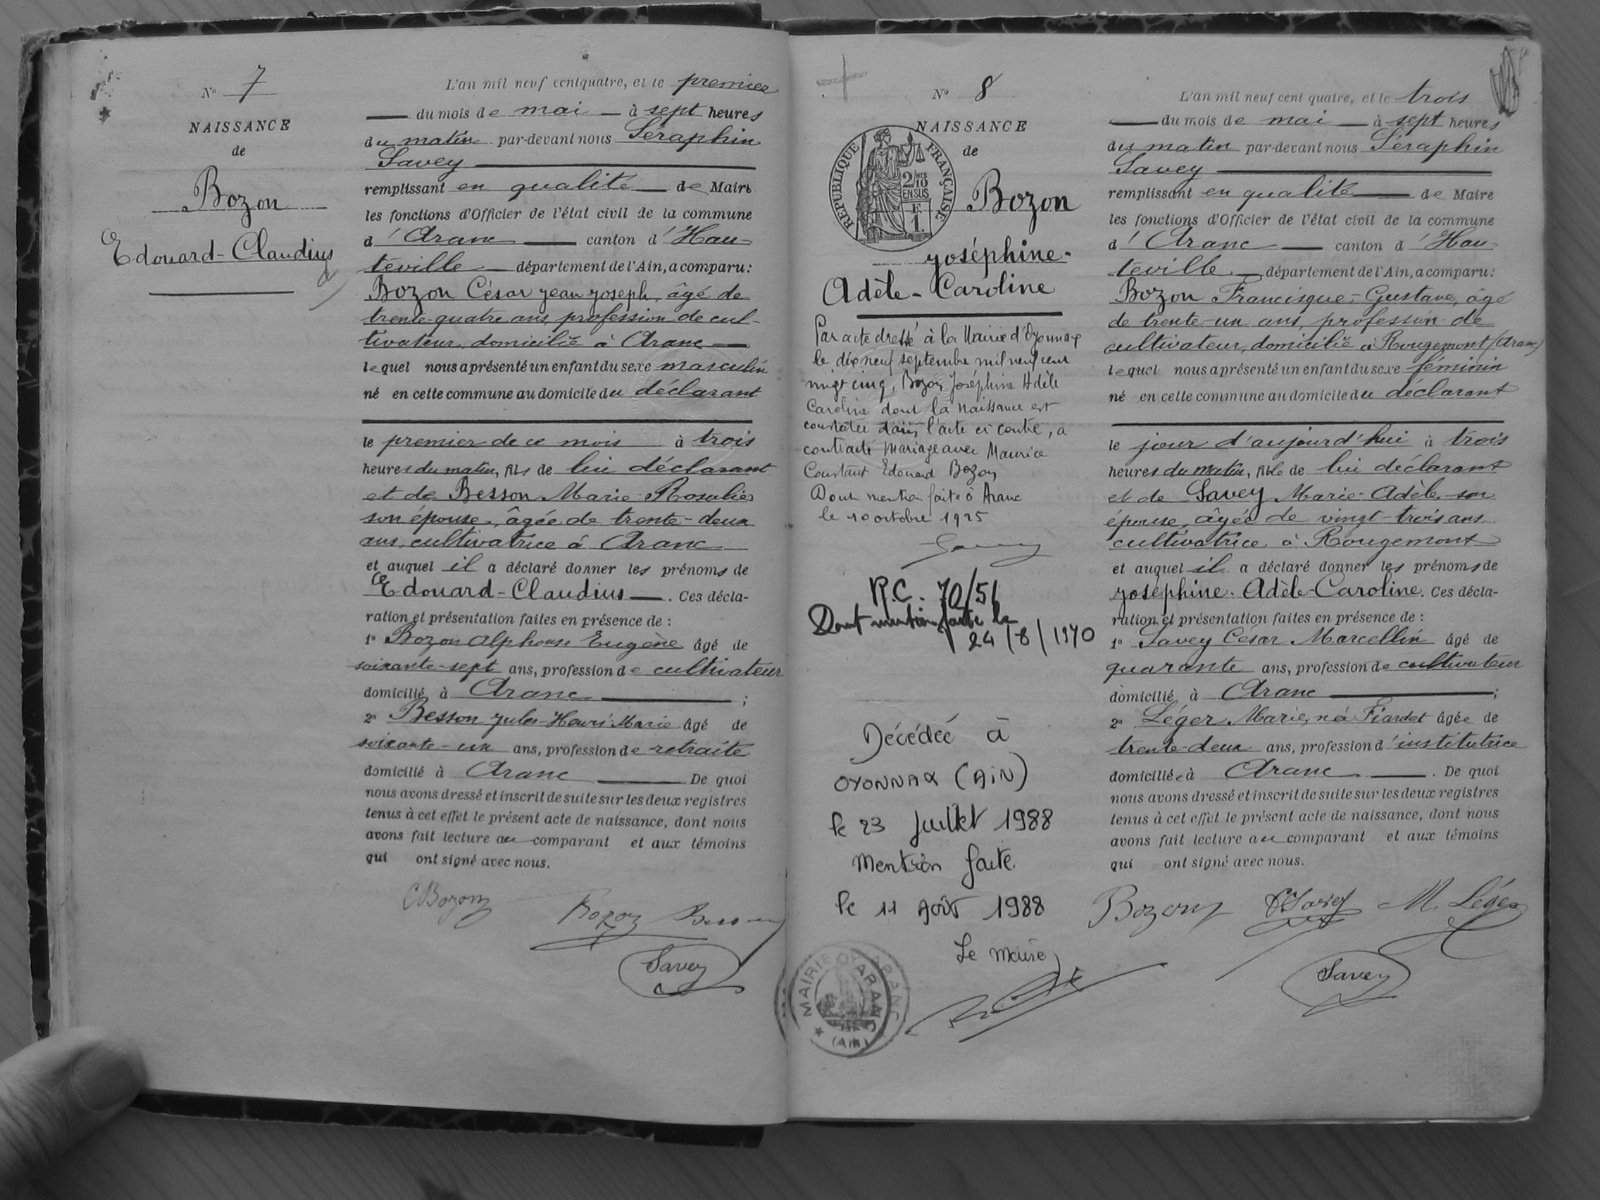 N° 7
NAISSANCE
de
Bozon
Edouard-Claudius
L'an mil neuf cent quatre, et le premier
du mois de mai à sept heures
du matin par-devant nous Séraphin
Savey
remplissant en qualité de Maire
les fonctions d'Officier de l'état civil de la commune
d'Aranc canton d'Hau-
teville département de l'Ain, a comparu:
Bozon César Jean Joseph, âgé de
trente-quatre ans profession de cul-
tivateur, domicilié à Aranc
lequel nous a présenté un enfant du sexe masculin
né en cette commune au domicile du déclarant
le premier de ce mois à trois
heures du matin, fils de lui déclarant
et de Besson Marie-Rosalie
son épouse, âgée de trente-deux
ans, cultivatrice à Aranc
et auquel il a déclaré donner les prénoms de
Edouard-Claudius. Ces décla-
ration et présentation faites en présence de :
1° Bozon Alphonse Eugène âgé de
soixante-sept ans, profession de cultivateur
domicilié à Aranc ;
2° Besson Jules-Henri-Marie âgé de
soixante-un ans, profession de retraité
domicilié à Aranc De quoi
nous avons dressé et inscrit de suite sur les deux registres
tenus à cet effet le présent acte de naissance, dont nous
avons fait lecture au comparant et aux témoins
qui ont signé avec nous.
CBozon Bozon Besson
Savey
N° 8
NAISSANCE
de
RÉPUBLIQUE FRANÇAISE
2/10
EN SUS
F
1
Bozon
Joséphine-
Adèle-Caroline
Par acte dressé à la Mairie d'Oyonnax
le dix neuf septembre mil neuf cent
vingt cinq, Bozon Joséphine Adèle
Caroline dont la naissance est
constatée dans l'acte ci contre, a
contracté mariage avec Maurice
Constant Edouard Bozon
Dont mention faite à Aranc
le 10 octobre 1925
Savey
R.C. 70/51
Dont mention faite le
24/8/1970
Décédée à
OYONNAX (AIN)
le 23 Juillet 1988
Mention faite
le 11 Août 1988
Le Maire
MAIRIE D'ARANC
(AIN)
L'an mil neuf cent quatre, et le trois
du mois de mai à sept heures
du matin par-devant nous Séraphin
Savey
remplissant en qualité de Maire
les fonctions d'Officier de l'état civil de la commune
d'Aranc canton d'Hau-
teville, département de l'Ain, a comparu:
Bozon Francisque-Gustave, âgé
de trente-un ans, profession de
cultivateur, domicilié à Rougemont (Aranc)
lequel nous a présenté un enfant du sexe féminin
né en cette commune au domicile du déclarant
le jour d'aujourd'hui à trois
heures du matin, fille de lui déclarant
et de Savey Marie-Adèle, son
épouse, âgée de vingt-trois ans
cultivatrice à Rougemont
et auquel il a déclaré donner les prénoms de
Joséphine-Adèle-Caroline. Ces décla-
ration et présentation faites en présence de :
1° Savey César Marcellin âgé de
quarante ans, profession de cultivateur
domicilié à Aranc ;
2° Léger Marie, née Fiardet âgée de
trente-deux ans, profession d'institutrice
domiciliée à Aranc . De quoi
nous avons dressé et inscrit de suite sur les deux registres
tenus à cet effet le présent acte de naissance, dont nous
avons fait lecture au comparant et aux témoins
qui ont signé avec nous.
Bozon Savey M Léger
Savey